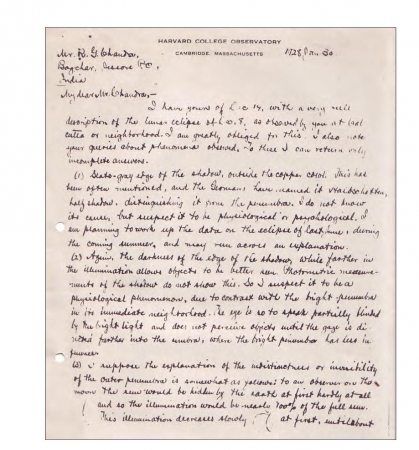 HARVARD COLLEGE OBSERVATORY
CAMBRIDGE, MASSACHUSETTS
1928, Jan. 30
Mr. R. G. Chandra,
Bagchar, Jessore P.O.
India
My dear Mr. Chandra:-
I have yours of Dec 14, with a very nice
description of the lunar eclipse of Dec. 8, as observed by you at Cal
cutta or neighborhood. I am greatly obliged for this. I also note
your queries about phenomena observed. To these I can return only
incomplete answers.
(1) Slate-gray edge of the shadow, outside the copper cored. This has
been often mentioned, and the Germans have named it
half shadow, distinguishing it from the penumbra. I do not know
its cause, but suspect it to be physiological or psychological. I
am planning to work up the data on the eclipse of last June, during
the coming summer, and may run across an explanation.
(2) Again, the darkness of the edge of the shadow, while farther in
the illumination allows objects to be better seen. Photometric measure-
ments of the shadow do not show this. So I suspect it to be a
physiological phenomenon, due to contrast with the bright penumbra
in its immediate neighborhood. The eye is so to speak partially blinded
by the bright light and does not perceive objects until the gaze is di
rected farther into the umbra, where the bright penumbra has less in
fluence.
(3) I suppose the explanation of the indistinctness or invisibility
of the outer penumbra is somewhat as follows: to an observer on the
moon the sun would be hidden by the earth at first hardly at all
and so the illumination would be nearly 100% of the full sun.
This illumination decreases slowly at first, until about